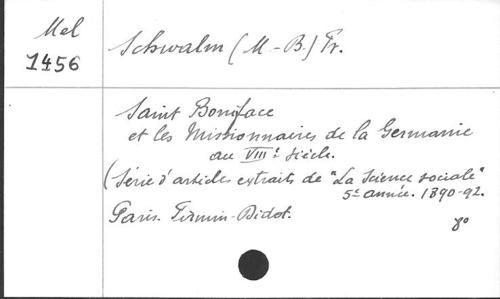 Mel
1456
Schwalm (M-B.) Fr.
Saint Boniface
et les Missionnaires de la Germanie
au VIIIe siècle.
(Série d'articles extraits de "La Science sociale"
5e année. 1890-92.
Paris. Firmin-Didot.
8o